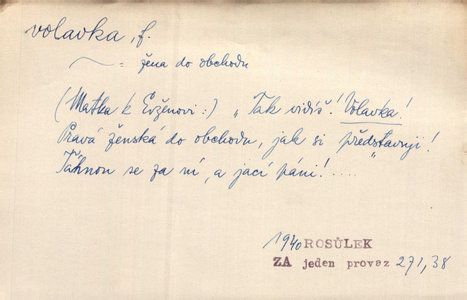 volavka, f.
~ = žena do obchodu
(Matka k Evženovi:) „Tak vidíš! Volavka!
Pravá ženská do obchodu, jak si představuji!
Táhnou se za ní, a jací páni!....
1940 ROSŮLEK
ZA jeden provaz 271, 38